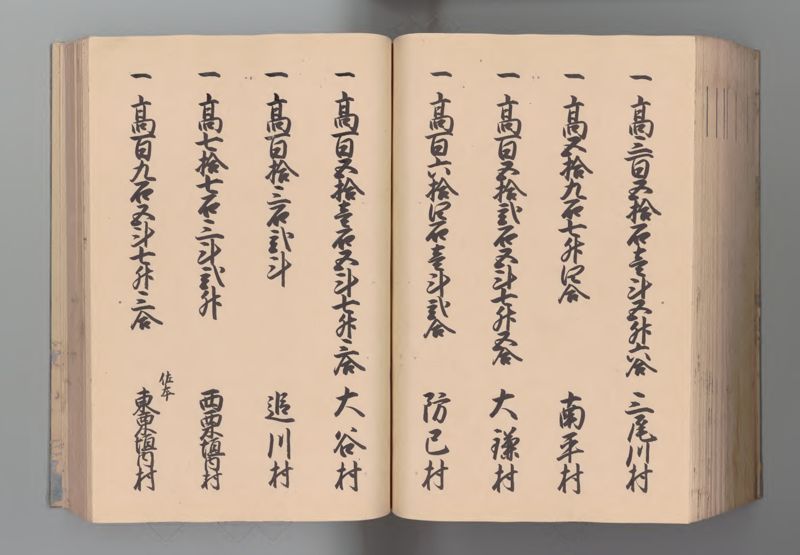 一 高三百五拾石壱斗五升六合 三尾川村
一 高五拾九石七升四合 南平村
一 高百五拾弐石五斗七升五合 大鎌村
一 高百六拾四石壱斗弐合 防己村
一 高百五拾壱石五斗七升三合 大谷村
一 高百拾三石弐斗 追川村
一 高七拾七石三斗弐升 西栗垣内村
一 高百九石五斗七升三合 佐本 東栗垣内村